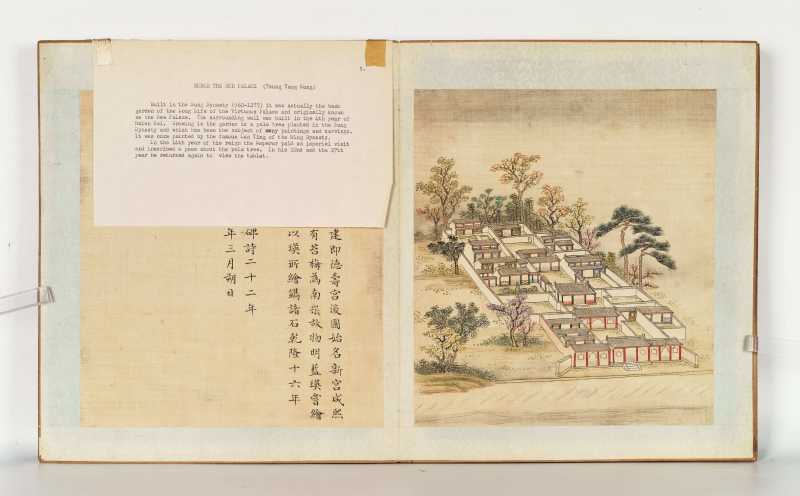 5.
THE PALACE (Tsung Yang Kung)
Built in the Sung Dynasty (960-1277) it was actually the back
garden of the Long Life of the Virtuous Palace and originally known
as the New Palace. The surrounding wall was built in the 4th year of
Growing in the garden is a tree planted in the Sung
Dynasty and which has been the subject of many paintings and carvings.
It was once painted by the famous Lan Ying of the Ming Dynasty.
In the 16th year of his reign the Emperor paid an imperial visit
and inscribed a poem about the tree. In his 22nd and the 27th
year he returned again to view the tablet.
建即德壽宮後圃始名新宮咸熙
有苔梅為南宋故物明藍瑛嘗繪
以瑛所繪鐫諸石乾隆十六年
碑詩二十二年
年三月朔日